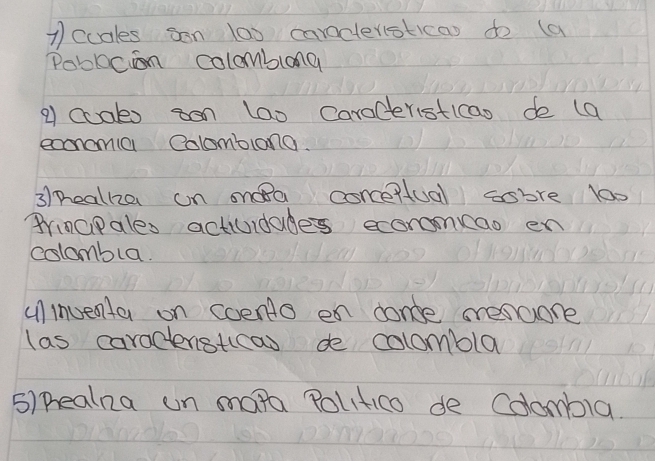 1) Cuales son las caracteristicas de la
Poblacion colombiana
2) Cuales son las caracteristicas de la
economia Colombiana.
3) Realiza un mapa conceptual sobre las
Principales actividades economicas en
colombia.
4) inventa un cuento en donde mencione
las caracteristicas de colombia
5) Realiza un mapa Politico de Colombia.